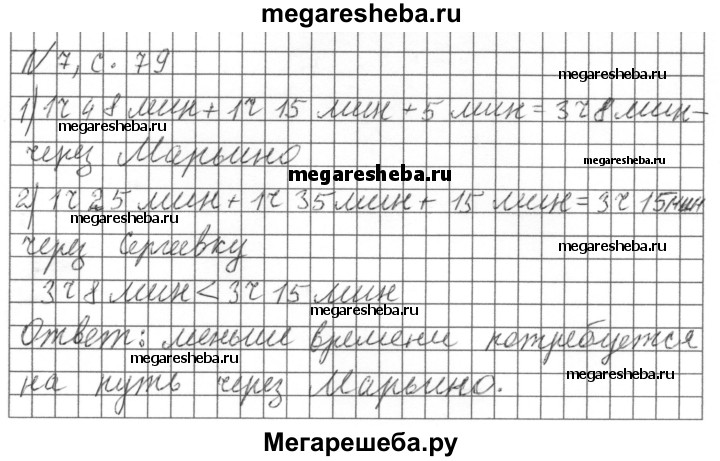 megaresheba.ru
N 7, с. 79
megaresheba.ru
1) 1ч 48 мин + 1ч 15 мин + 5 мин = 3ч 8 мин -
megaresheba.ru
через Марьино
megaresheba.ru
megaresheba.ru
2) 1ч 25 мин + 1ч 35 мин + 15 мин = 3ч 15 мин
megaresheba.ru
через Сергеевку
megaresheba.ru
3ч 8 мин < 3ч 15 мин
megaresheba.ru
Ответ: меньше времени потребуется
megaresheba.ru
на путь через Марьино.
megaresheba.ru
Мегарешеба.ру